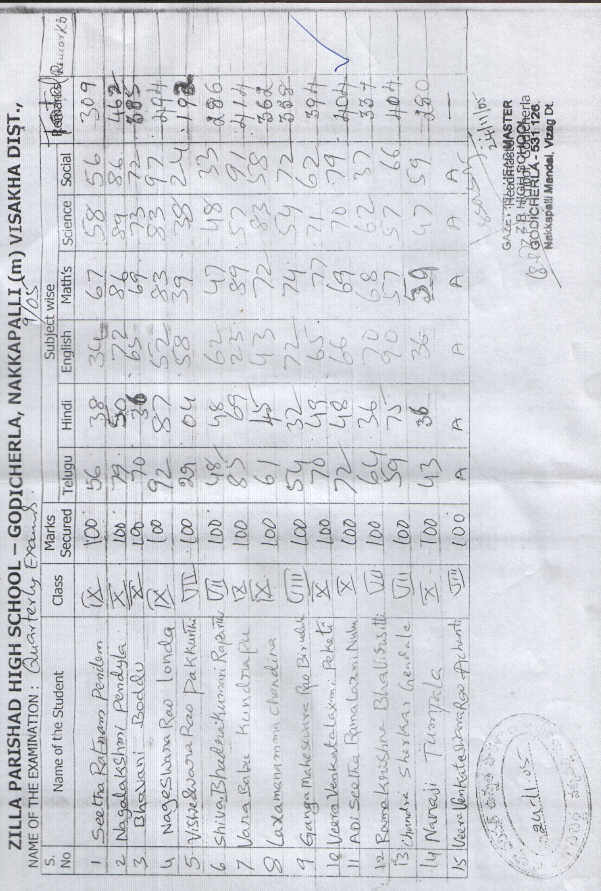 ZILLA PARISHAD HIGH SCHOOL – GODICHERLA, NAKKAPALLI (m) VISAKHA DIST.,
NAME OF THE EXAMINATION : Quarterly Exams. 9/05
S. No Name of the Student Class Marks Secured Subject wise Total Remarks
Telugu Hindi English Math's Science Social
1 Seetha Ratnam Pendem IX 100 56 38 34 67 58 56 309
2 Nagalakshmi Pendyla X 100 79 50 72 86 89 86 462
3 Bhavani Boddu X 100 70 36 65 69 73 72 385
4 Nageswara Rao Londa IX 100 92 87 52 83 83 97 494
5 Visweswara Rao Pakkurthi VII 100 29 04 58 39 38 24 192
6 Shiva Bhulma Kumari VII 100 48 48 62 47 48 33 286
7 Vara Babu Kundrapu IX 100 85 69 23 89 57 91 414
8 Laxamanamma Chondina IX 100 61 45 43 72 83 58 362
9 Ganga Maheswara Rao VIII 100 54 32 72 74 54 72 358
10 Veera Venkatalaxmi Peketi X 100 70 49 65 77 71 62 394
11 Adi Seetha Ramalaxmi X 100 72 48 66 69 70 79 404
12 Ramakrishna VII 100 64 36 70 68 62 37 337
13 Chandra Shekar VII 100 59 75 90 57 57 66 404
14 Nanaji Tumpala X 100 43 36 36 59 47 59 280
15 Veera Venkateswara Rao Achanti VIII 100 A A A A A A —
24/11/05
HEADMASTER
Z P HIGH SCHOOL
GODICHERLA - 531 126.
Nakkapalli Mandal, Vizag Dt.